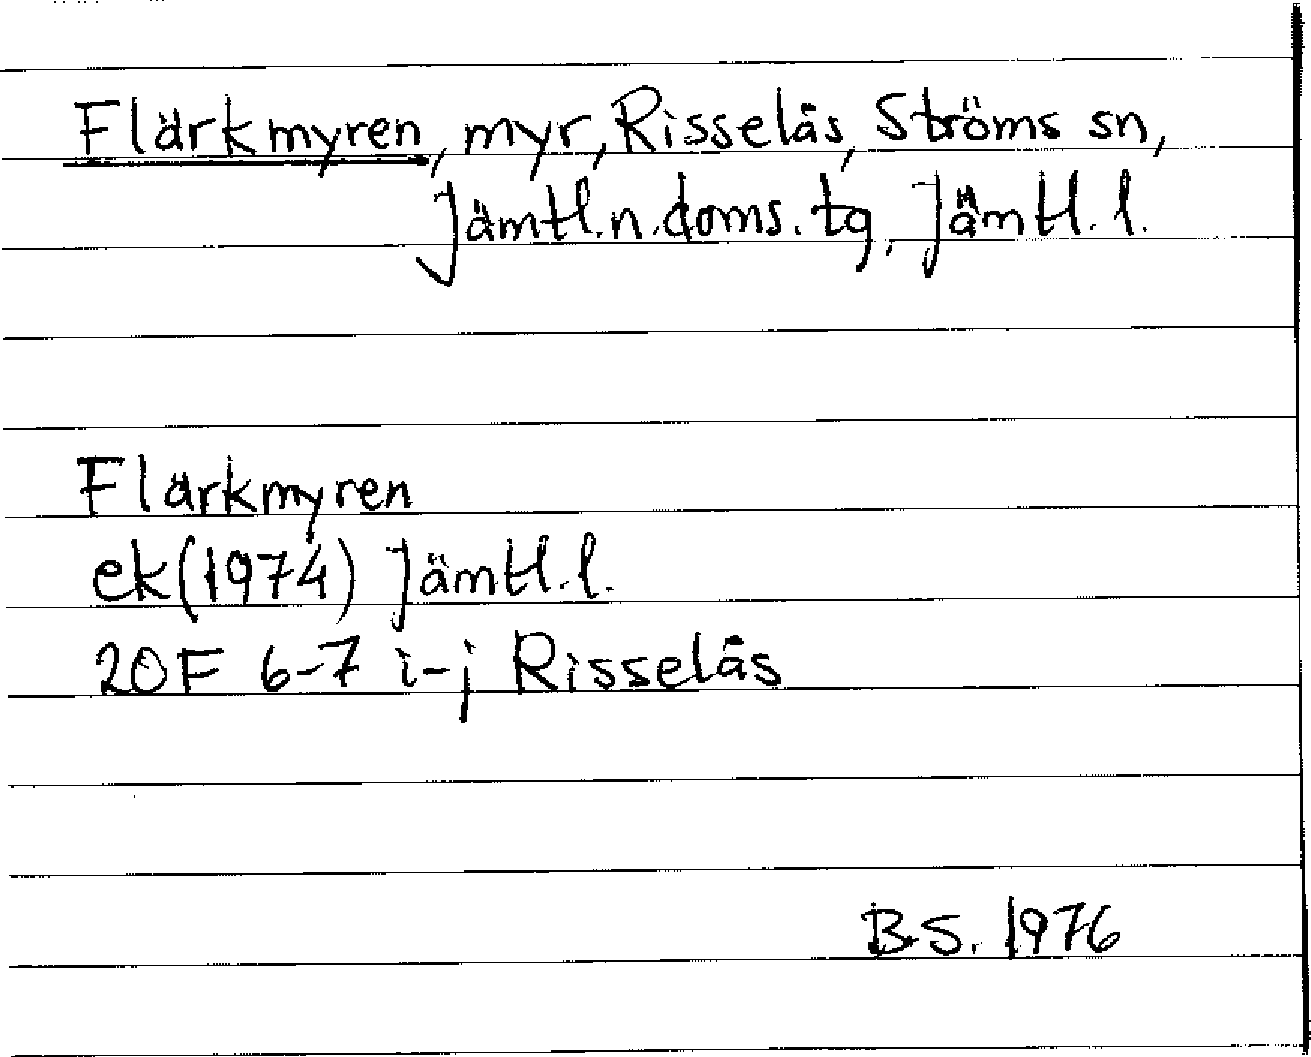 Flärkmyren, myr, Risselås, Ströms sn,
Jämtl.n.doms.tg, Jämtl.l.
Flärkmyren
ek(1974) Jämtl.l.
20F 6-7 i-j Risselås
B.S. 1976